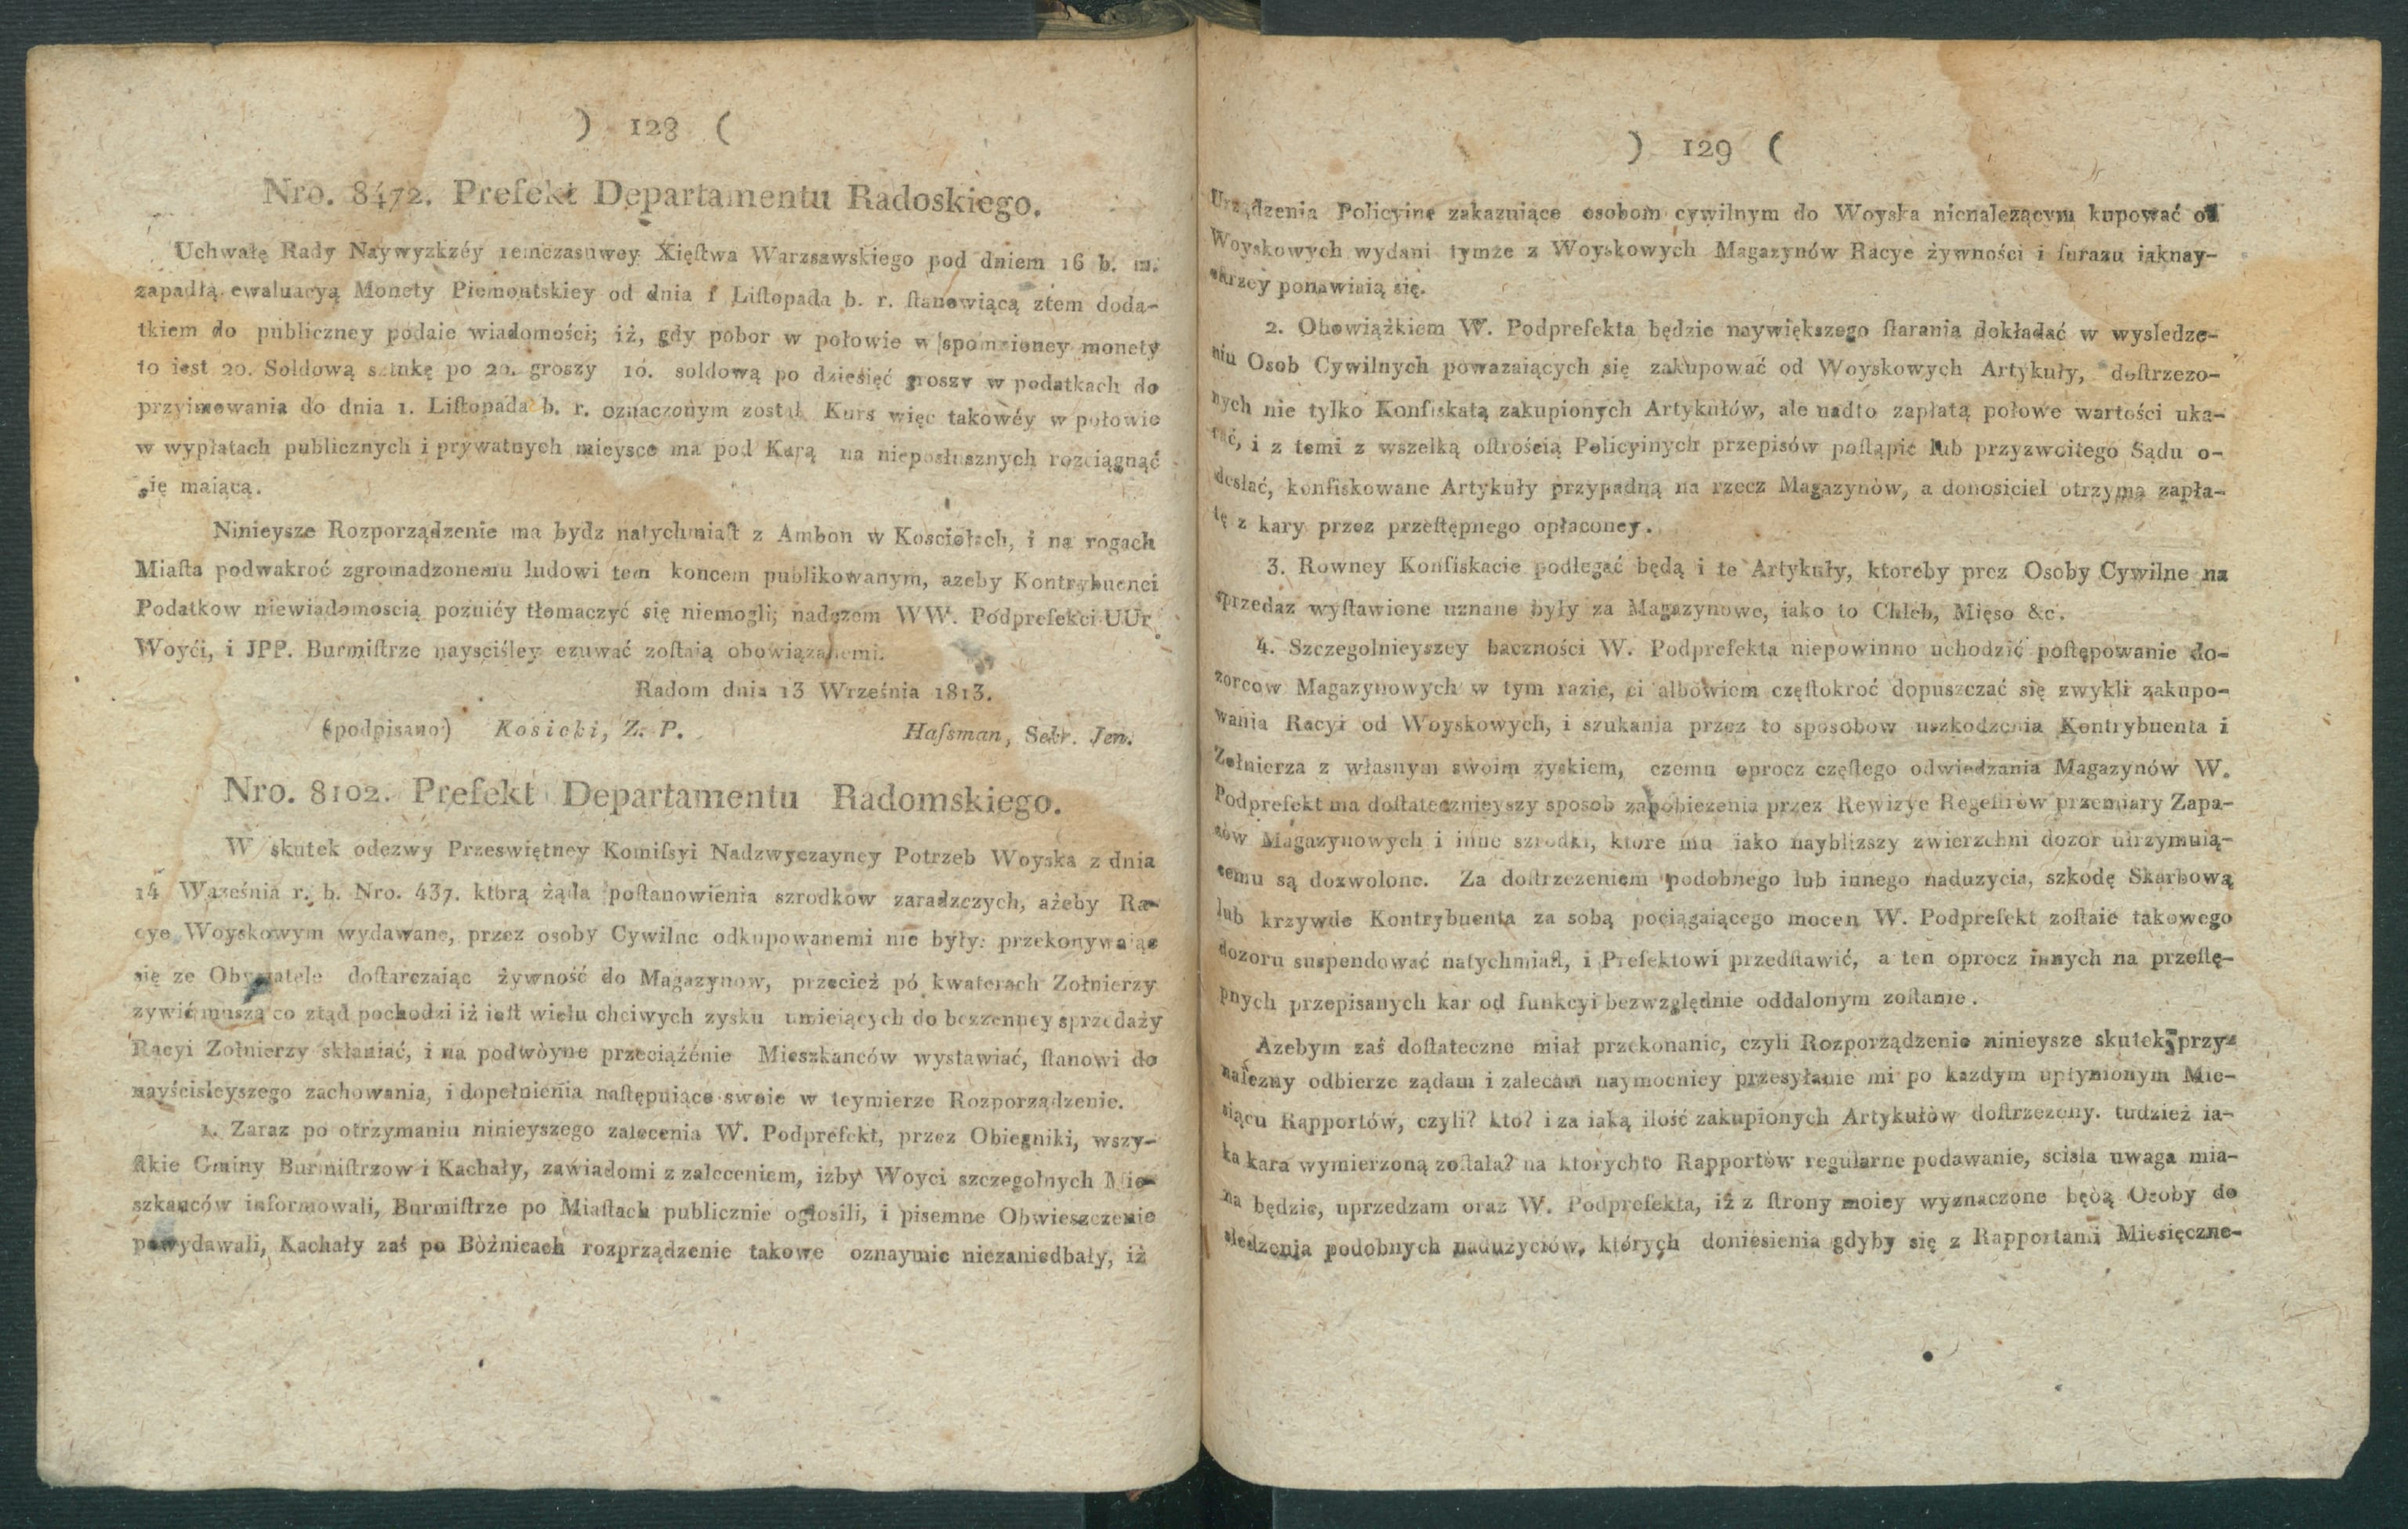 ) 128 (
Nro. 8472. Prefekt Departamentu Radoskiego.
Uchwałę Rady Naywyzkzéy temczasuwey Xięstwa Warzsawskiego pod dniem 16 b. m.
zapadłą ewaluacyą Monety Piemontskiey od dnia 1 Listopada b. r. stanowiącą ztem doda-
tkiem do publiczney podaie wiadomości; iż, gdy pobor w połowie wspomnioney monety
to iest 20. Soldową sztukę po 20. groszy 10. soldową po dziesięć groszy w podatkach do
przyimowania do dnia 1. Listopada b. r. oznaczonym został Kurs więc takowéy w połowie
w wypłatach publicznych i prywatnych mieysce ma pod Karą na nieposłusznych rozciągnąć
się maiącą.
Ninieysze Rozporządzenie ma bydz natychmiast z Ambon w Kosciołach, i na rogach
Miasta podwakroć zgromadzonemu ludowi tem koncem publikowanym, azeby Kontrybuenci
Podatkow niewiadomoscią pozniéy tłomaczyć się niemogli; nadczem WW. Podprefekci UUr.
Woyći, i JPP. Burmistrze naysciśley czuwać zostaią obowiązanemi.
Radom dnia 13 Września 1813.
(podpisano) Kosicki, Z. P. Hassman, Sekr. Jen.
Nro. 8102. Prefekt Departamentu Radomskiego.
W skutek odezwy Przeswiętney Komissyi Nadzwyczayney Potrzeb Woyska z dnia
14 Waześnia r. b. Nro. 437. ktorą żąda postanowienia szrodkow zaradzczych, ażeby Ra-
cye Woyskowym wydawane, przez osoby Cywilne odkupowanemi nie były: przekonywaiąc
się ze Obywatele dostarczaiąc żywność do Magazynow, przecież pó kwaterach Zołnierzy
zywić muszą co ztąd pochodzi iż iest wielu chciwych zysku umieiących do bezzenney sprzedaży
Racyi Zołnierzy skłaniać, i na podwòyne przeciążénie Mieszkanców wystawiać, stanowi do
nayścisleyszego zachowania, i dopełnienia następuiące swoie w teymierze Rozporządzenie.
1. Zaraz po otrzymaniu ninieyszego zalecenia W. Podprefekt, przez Obiegniki, wszy-
stkie Gminy Burmistrzow i Kachały, zawiadomi z zaleceniem, izby Woyci szczegołnych Mie-
szkańców informowali, Burmistrze po Miastach publicznie ogłosili, i pisemne Obwieszczenie
powydawali, Kachały zaś po Bòżnicach rozprządzenie takowe oznaymic niezaniedbały, iż
) 129 (
Urządzenia Policyine zakazuiące osobom cywilnym do Woyska nienalezącym kupować od
Woyskowych wydani tymże z Woyskowych Magazynów Racye żywności i furazu iaknay-
skrzey ponawiaią się.
2. Obowiążkiem W. Podprefekta będzie naywiększego starania dokładać w wysledze-
niu Osob Cywilnych powazaiących się zakupować od Woyskowych Artykuły, dostrzezo-
nych nie tylko Konfiskatą zakupionych Artykułów, ale nadto zapłatą połowe wartości uka-
rać, i z temi z wszelką ostrością Policyinych przepisów postąpić lub przyzwoitego Sądu o-
desłać, konfiskowane Artykuły przypadną na rzecz Magazynòw, a donosiciel otrzyma zapła-
tę z kary przez przestępnego opłaconey.
3. Rowney Konfiskacie podlegać będą i te Artykuły, ktoreby prez Osoby Cywilne na
sprzedaz wystawione uznane były za Magazynowe, iako to Chleb, Mięso &c.
4. Szczegolnieyszey baczności W. Podprefekta niepowinno uchodzić postępowanie do-
zorcow Magazynowych w tym razie, ci albowiem częstokroć dopuszczać się zwykli zakupo-
wania Racyi od Woyskowych, i szukania przez to sposobow uszkodzenia Kontrybuenta i
Zołnierza z własnym swoim zyskiem, czemu oprocz częstego odwiedzania Magazynów W.
Podprefekt ma dostatecznieyszy sposob zapobiezenia przez Rewizye Regestrow przemiary Zapa-
sòw Magazynowych i inne szrodki, ktore mu iako nayblizszy zwierzchni dozor utrzymuią-
cemu są dozwolone. Za dostrzezeniem podobnego lub innego naduzycia, szkodę Skarbową
lub krzywde Kontrybuenta za sobą pociągaiącego mocen W. Podprefekt zostaie takowego
dozoru suspendować natychmiast, i Prefektowi przedstawić, a ten oprocz innych na przestę-
pnych przepisanych kar od funkcyi bezwzględnie oddalonym zostanie.
Azebym zaś dostateczne miał przekonanie, czyli Rozporządzenie ninieysze skutek przy-
nalezny odbierze ządam i zalecam naymocniey przesyłanie mi po kazdym upłynionym Mie-
siącu Rapportów, czyli? kto? i za iaką ilość zakupionych Artykułòw dostrzezony. tudzież ia-
ka kara wymierzoną została? na ktorychto Rapportòw regularne podawanie, scisła uwaga mia-
na będzie, uprzedzam oraz W. Podprefekta, iż z strony moiey wyznaczone będą Osoby do
sledzenia podobnych nadużyciów, których doniesienia gdyby się z Rapportami Miesięczne-